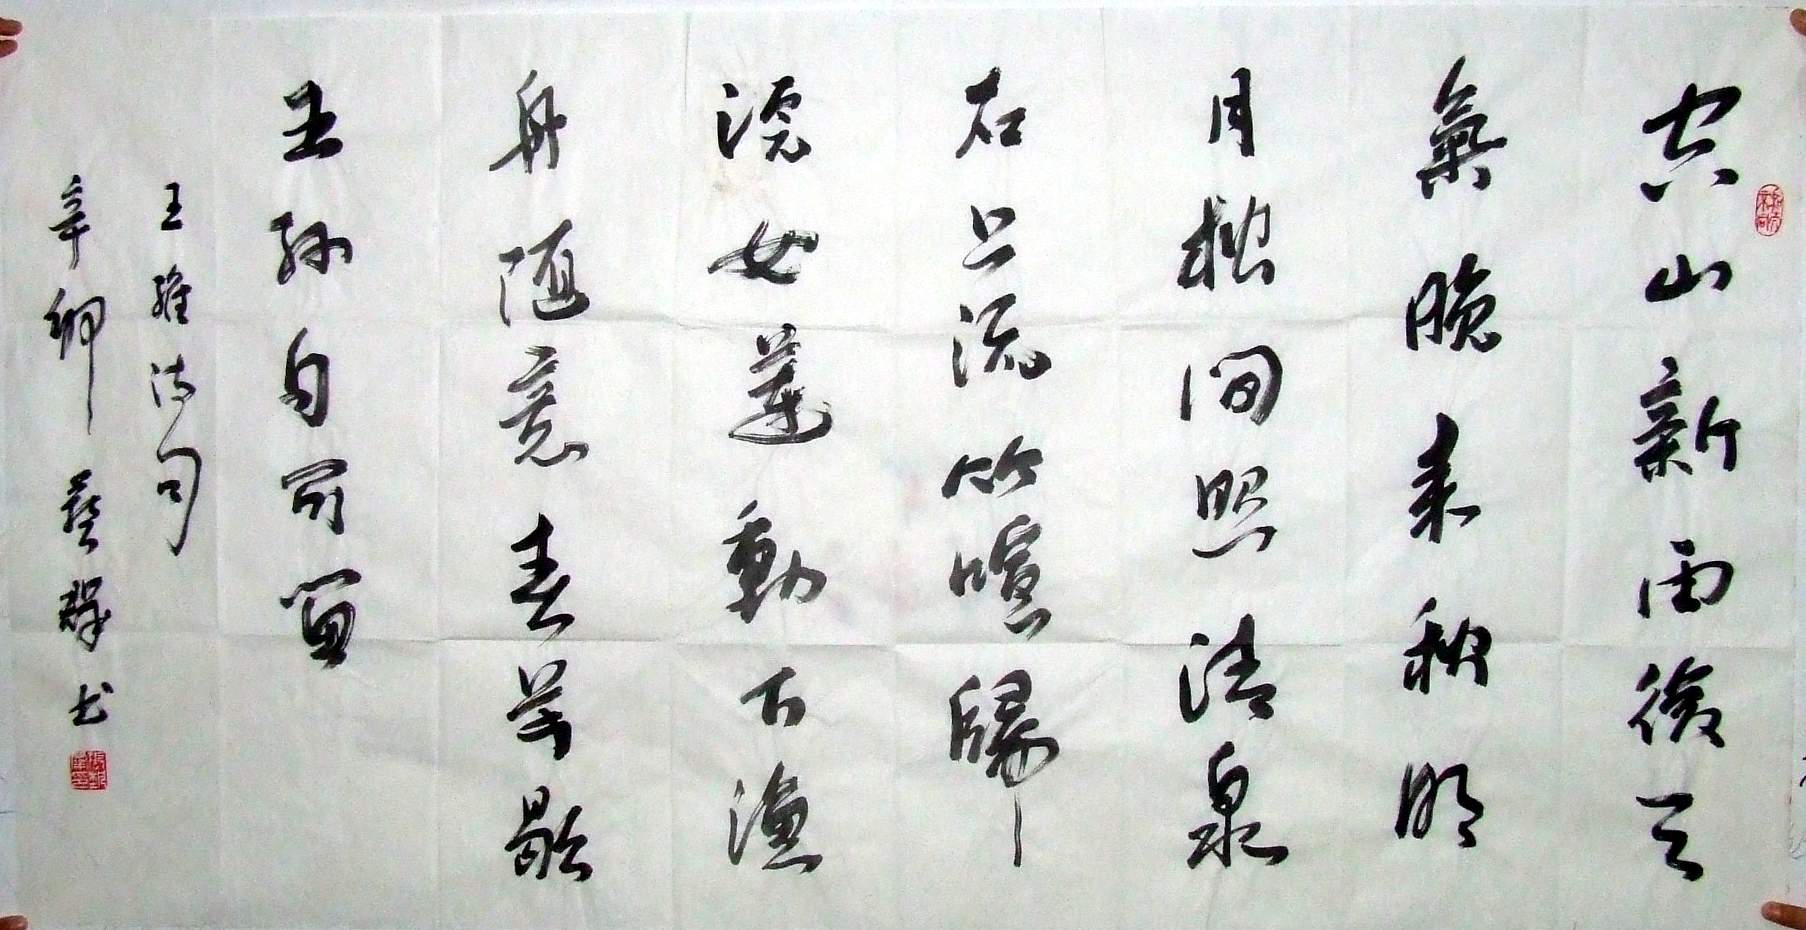 空山新雨後天
氣晚来秋明
月松間照清泉
石上流竹喧歸
浣女蓮動下漁
舟随意春芳歇
王孫自可留
王維诗句
辛卯藝群书